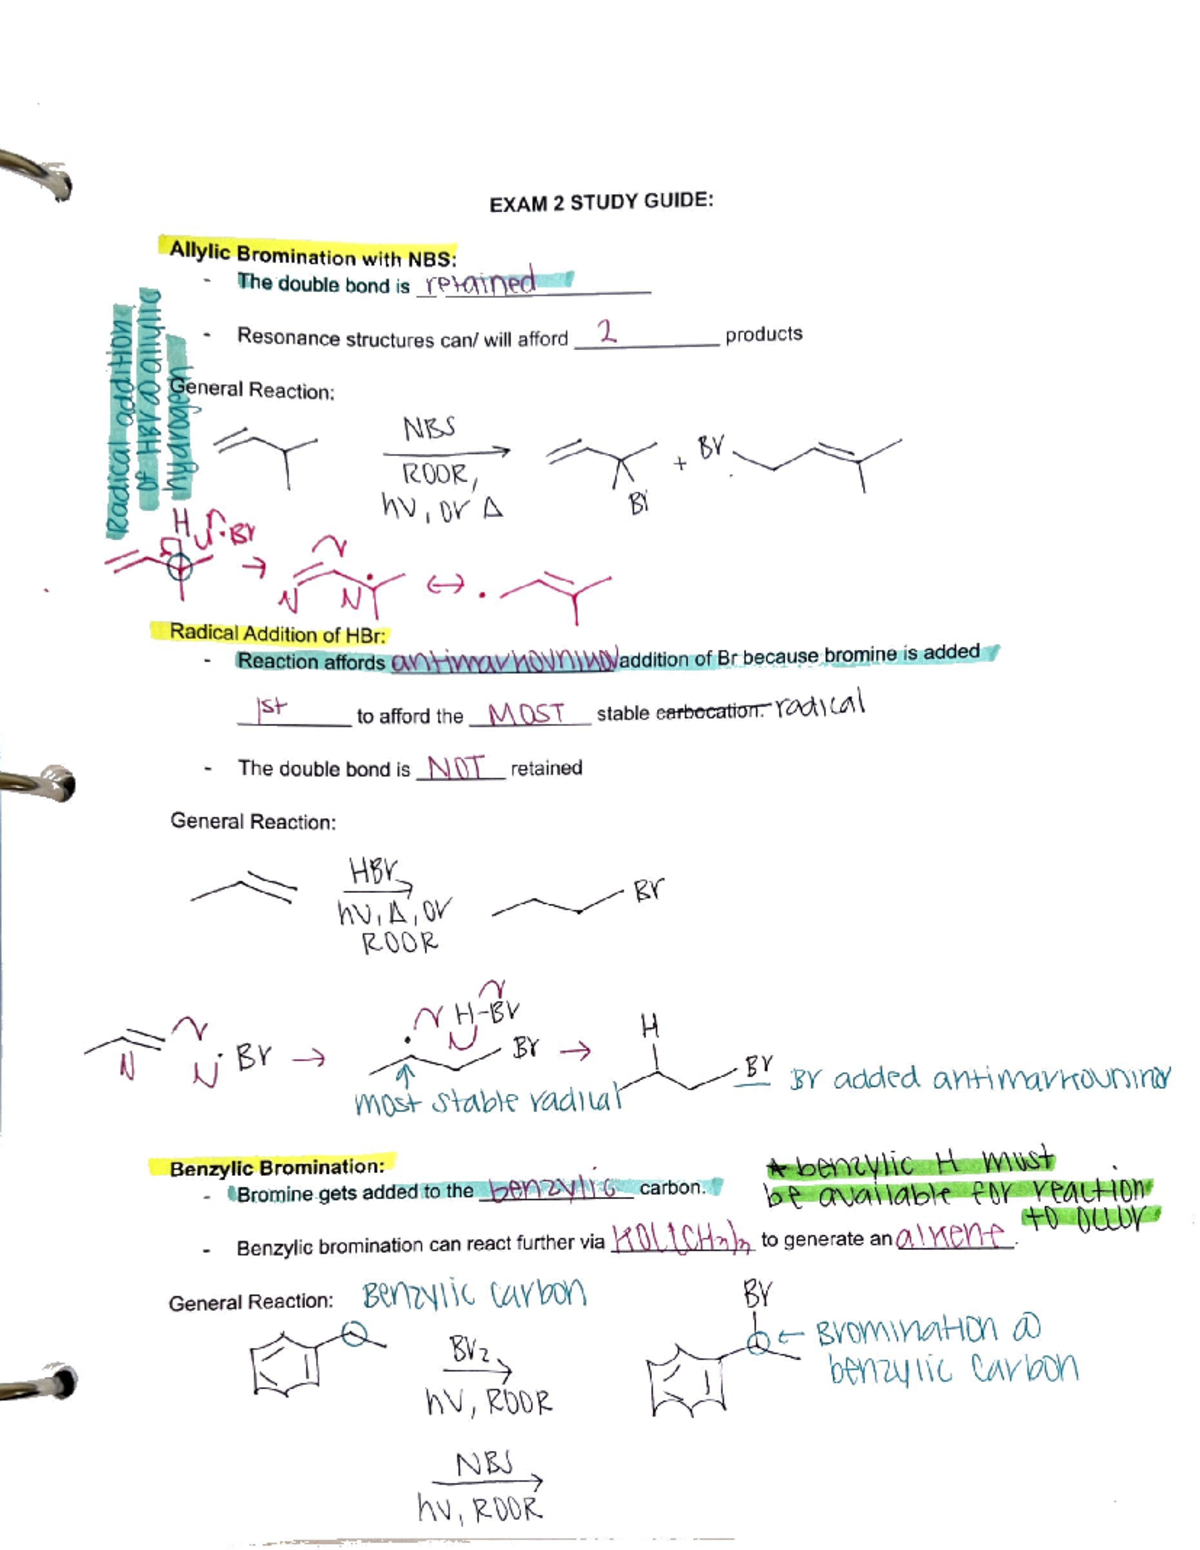 EXAM 2 STUDY GUIDE:
Allylic Bromination with NBS:
- The double bond is retained
- Resonance structures can/ will afford 2 products
Radical addition
of HBr @ allylic
hydrogen
General Reaction:
NBS
ROOR,
hv, or Δ
Br
+ Br
H
Br
Radical Addition of HBr:
- Reaction affords antimarkovnikov addition of Br because bromine is added
1st to afford the MOST stable carbocation. radical
- The double bond is NOT retained
General Reaction:
HBr
hv, Δ, or
ROOR
Br
Br
H-Br
Br
most stable radical
H
Br
Br added antimarkovnikov
Benzylic Bromination:
- Bromine gets added to the benzylic carbon.
* benzylic H must
be available for reaction
to occur
- Benzylic bromination can react further via to generate an alkene.
General Reaction: Benzylic carbon
Br2
hv, ROOR
Br
← Bromination @
benzylic carbon
NBS
hv, ROOR